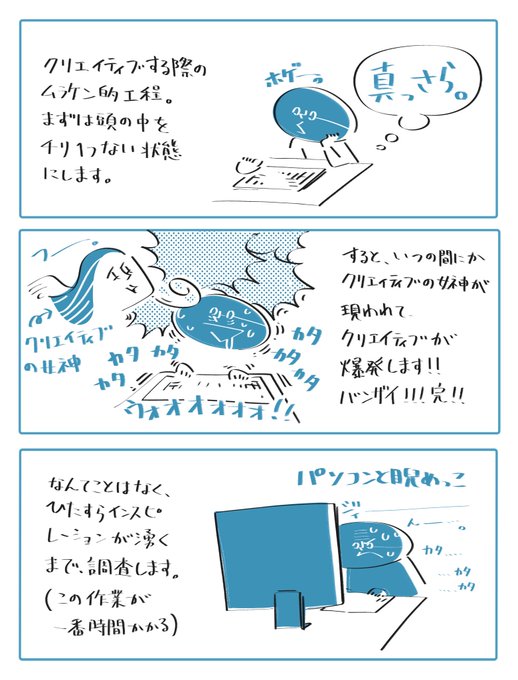 クリエイティブする際の
ムラケン的工程。
まずは頭の中を
チリ1つない状態
にします。
ホゲーっ
真っさら。
フー。
クリエイティブ
の女神
カタ カタ
カタ
カタ
カタ
カタ
ウォオオオオオ!!
すると、いつの間にか
クリエイティブの女神が
現われて
クリエイティブが
爆発します!!
バンザイ!!!完!!
なんてことはなく、
ひたすらインスピ
レーションが湧く
まで、調査します。
(この作業が
一番時間かかる)
パソコンと睨めっこ
ジィ
んー。
カタ…
…カタ
…カタ